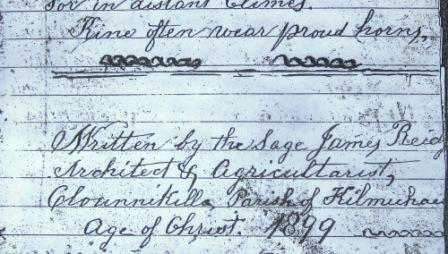 For in distant Climes.
Kine often wear proud horns,
Written by the Sage James Reid
Architect & Agriculturist,
Clounnikilla, Parish of Kilmichael
Age of Christ. 1899